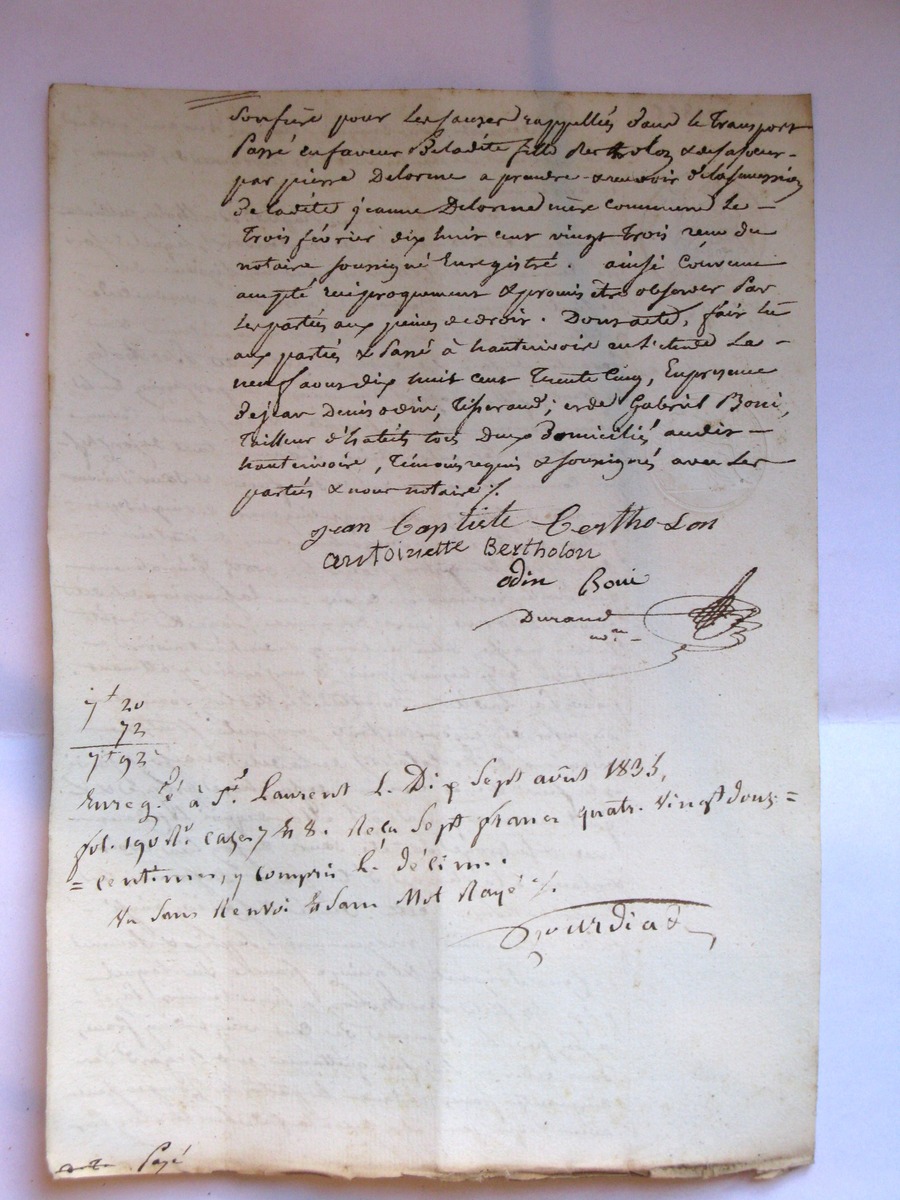 son frère pour les causes rappellées dans le transport
passé en faveur de ladite fille Bertholon & de sa sœur
par pierre Delorme a prendre & recevoir de la succession
de ladite jeanne Delorme mère commune le
trois février dix huit cent vingt trois reçu du
notaire soussigné Enregistré. ainsi convenu
accepté réciproquement & promis être observer par
les parties aux peines de droit. Dont acte, fait lu
aux parties & passé à hauterivoire en l'étude le
neuf aout dix huit cent trente cinq, En presence
de jean Denis odin, tisserand; et de Gabriel Boui,
tailleur d'habits tous deux Domiciliés audit
hauterivoire, témoins requis & soussignés avec les
parties & nous notaire ./.
jean Baptiste Bertholon
antoinette Bertholon
odin Boui
Durand
nre
7f 20
72
7f 92
Enreg.é à St. Laurent le Dix Sept août 1835,
fol. 190 Ro. cases 7 Et 8. Reçu Sept francs quatre Vingt douze
centimes, y compris le décime.
Vu Sans Renvoi Et Sans Mot Rayé ./.
Gourdiat
Payé